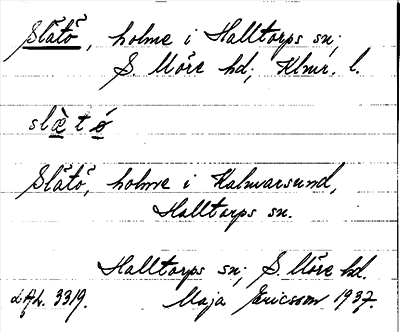 Slätö, holme i Halltorps sn;
S. Möre hd; Klmr. l.
slæ̀tǿ
Slätö, holme i Kalmarsund,
Halltorps sn.
Halltorps sn; S. Möre hd.
Maja Ericsson 1937.